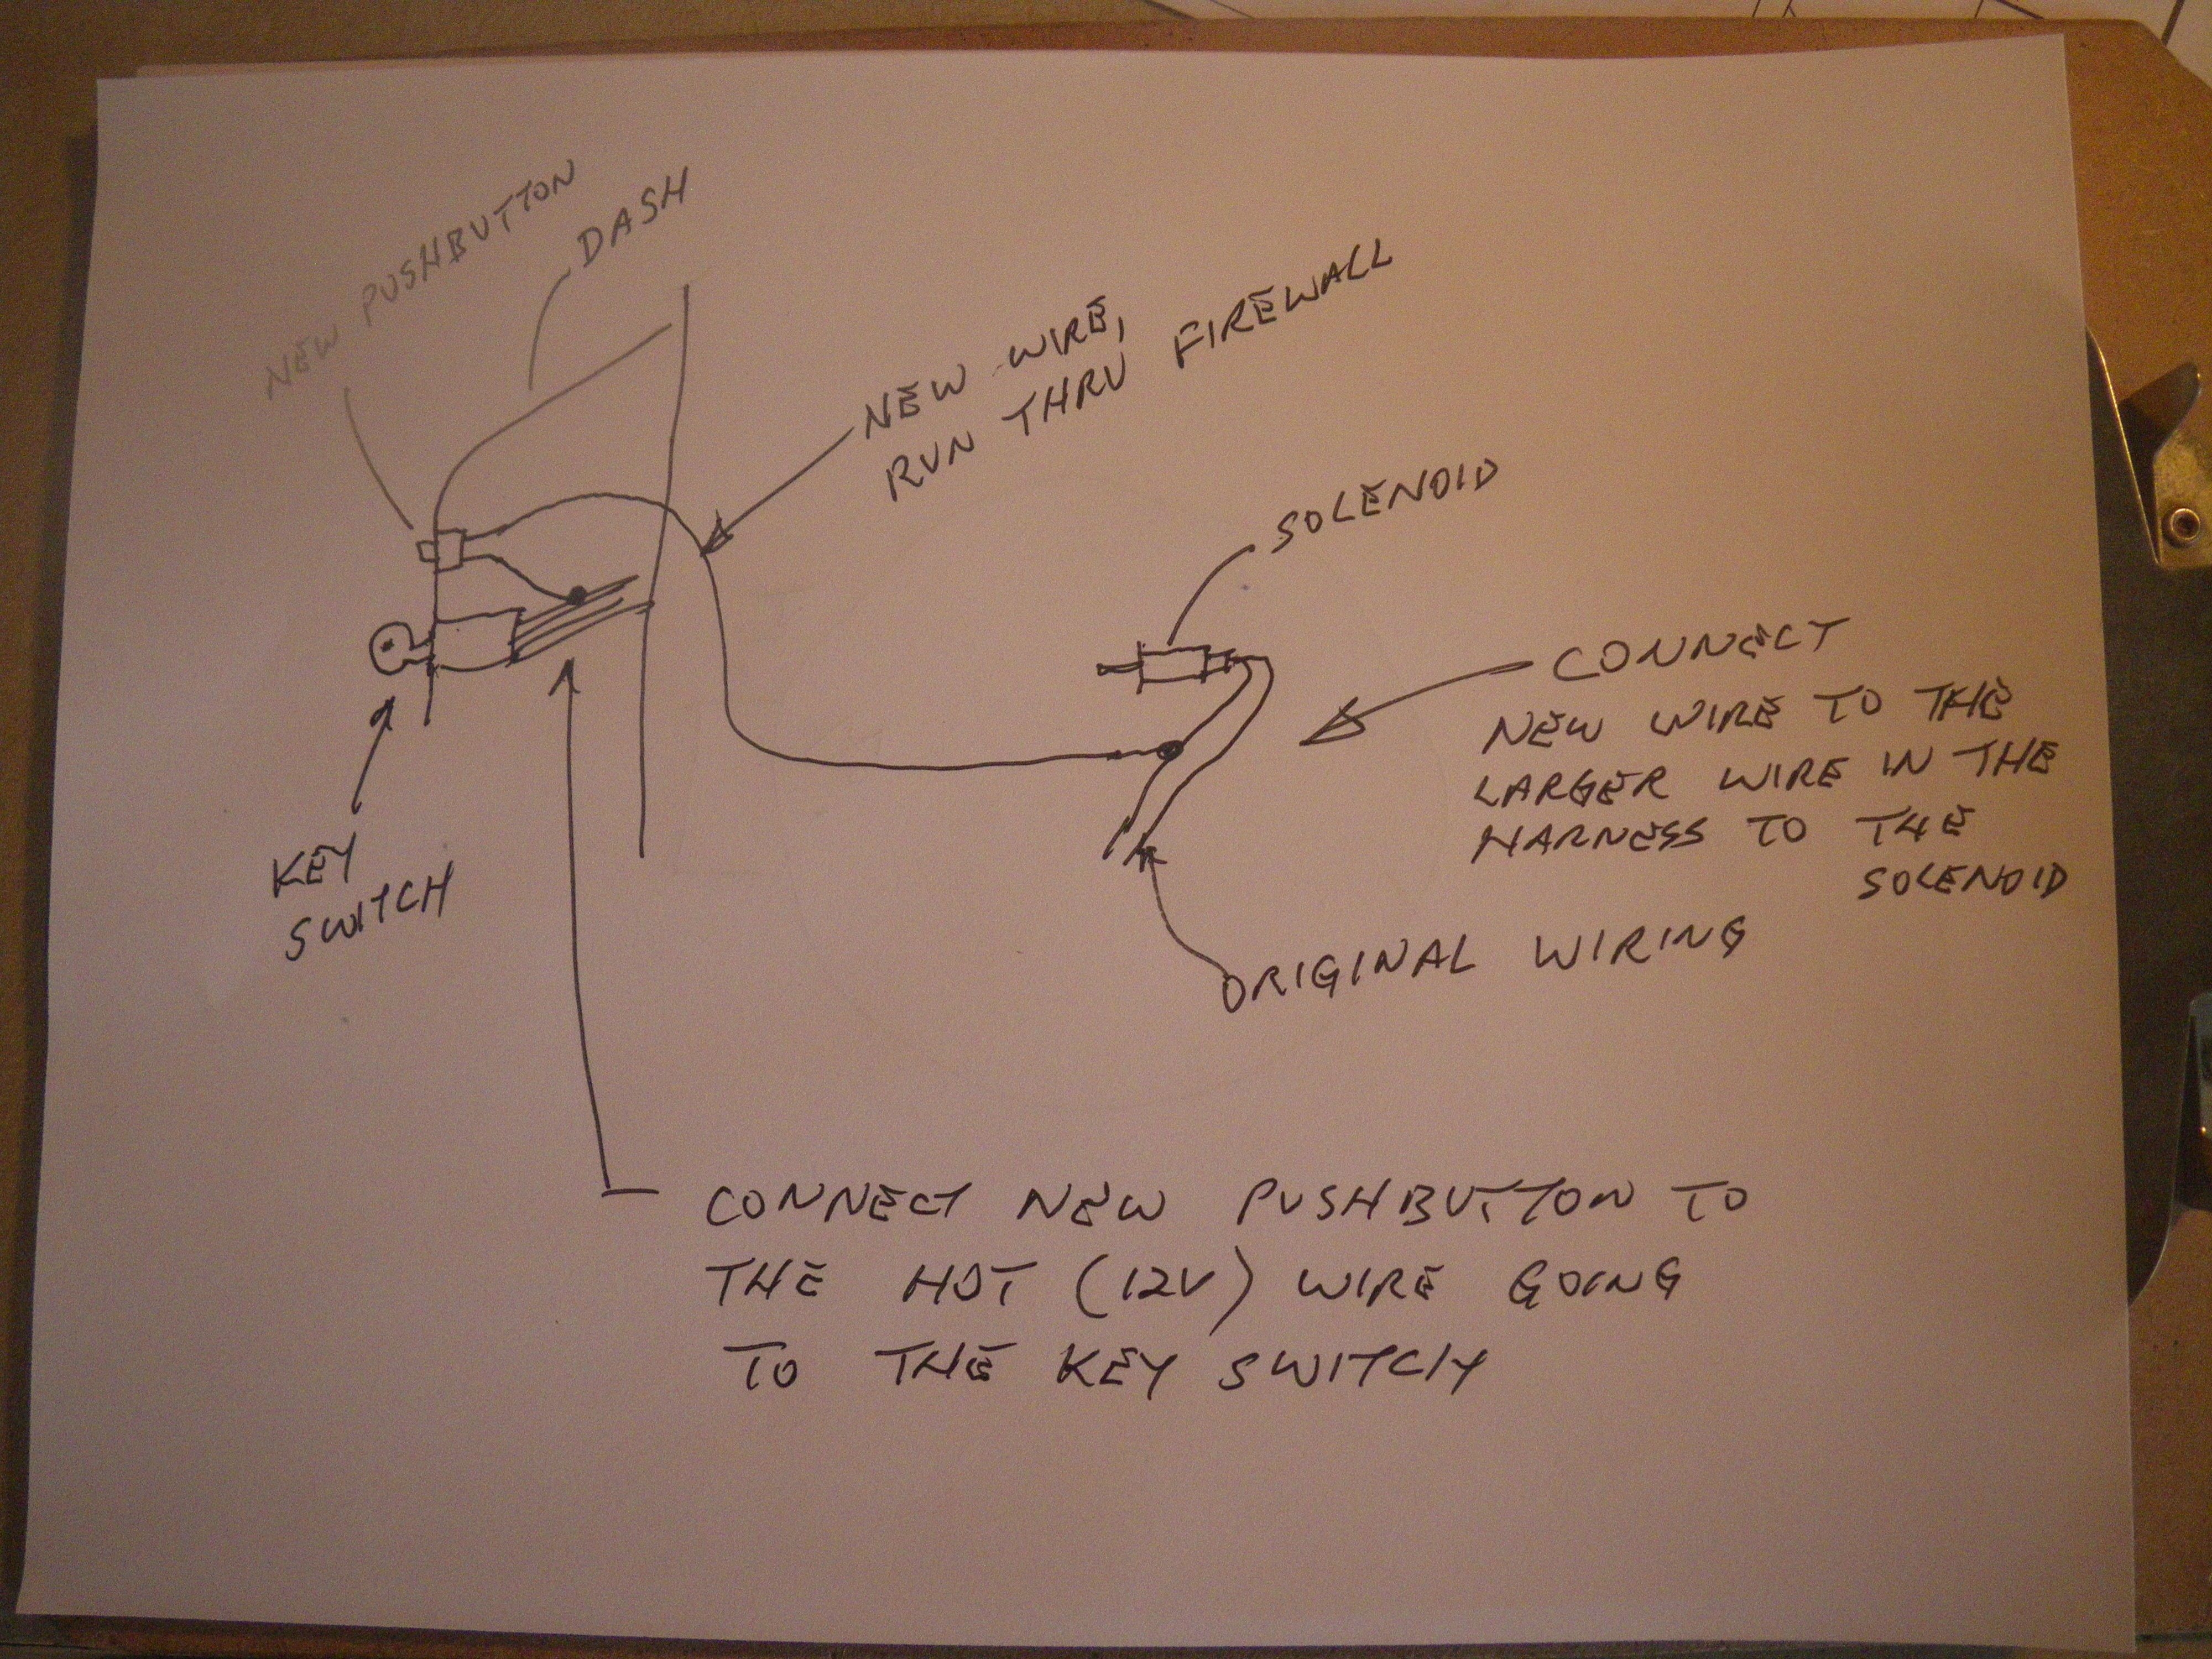 NEW PUSHBUTTON
DASH
NEW WIRE,
RUN THRU FIREWALL
SOLENOID
CONNECT
NEW WIRE TO THE
LARGER WIRE IN THE
HARNESS TO THE
SOLENOID
KEY
SWITCH
ORIGINAL WIRING
CONNECT NEW PUSHBUTTON TO
THE HOT (12V) WIRE GOING
TO THE KEY SWITCH